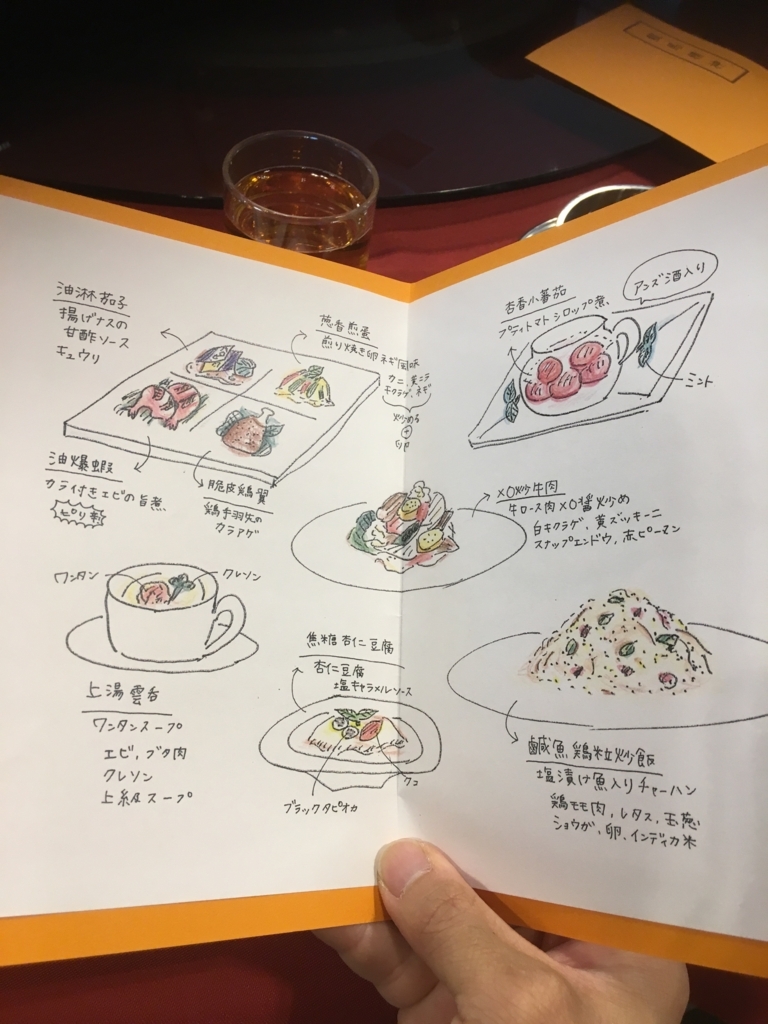 油淋茄子
揚げナスの
甘酢ソース
キュウリ
葱香煎蛋
煎り焼き卵 ネギ風味
カニ、黄ニラ
キクラゲ、ネギ
炒める
+
卵
油爆蝦
カラ付きエビの旨煮
ピリ辛
脆皮鶏翼
鶏手羽先の
カラアゲ
ワンタン
クレソン
上湯雲呑
ワンタンスープ
エビ、ブタ肉
クレソン
上級スープ
焦糖杏仁豆腐
杏仁豆腐
塩キャラメルソース
ブラックタピオカ
クコ
杏香小蕃茄
プティトマトシロップ煮
アンズ酒入り
ミント
XO炒牛肉
牛ロース肉XO醤炒め
白キクラゲ、黄ズッキーニ
スナップエンドウ、赤ピーマン
鹹魚鶏粒炒飯
塩漬け魚入りチャーハン
鶏モモ肉、レタス、玉葱
ショウガ、卵、インディカ米